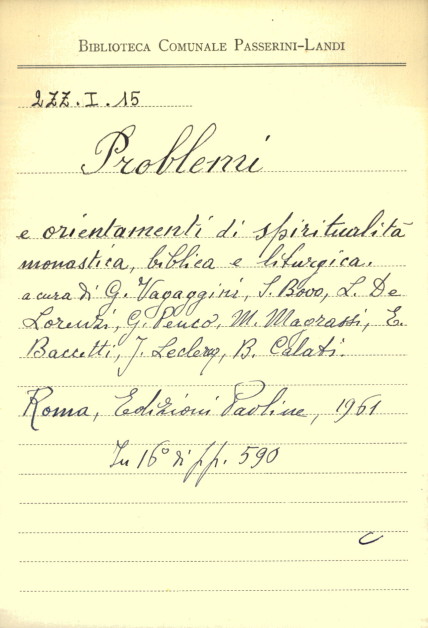 BIBLIOTECA COMUNALE PASSERINI-LANDI
2ZZ.I.15
Problemi
e orientamenti di spiritualità
monastica, biblica e liturgica.
a cura di G. Vagaggini, S. Bovo, L. De
Lorenzi, G. Penco, M. Magrassi, E.
Baccetti, J. Leclerq, B. Calati.
Roma, Edizioni Paoline, 1961
In 16° di pp. 590
C